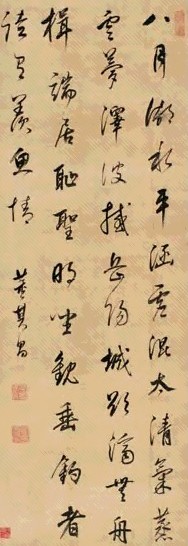 八月湖水平涵虛混太清氣蒸
雲夢澤波撼岳陽城欲濟無舟
楫端居恥聖明坐觀垂釣者
徒有羨魚情 董其昌